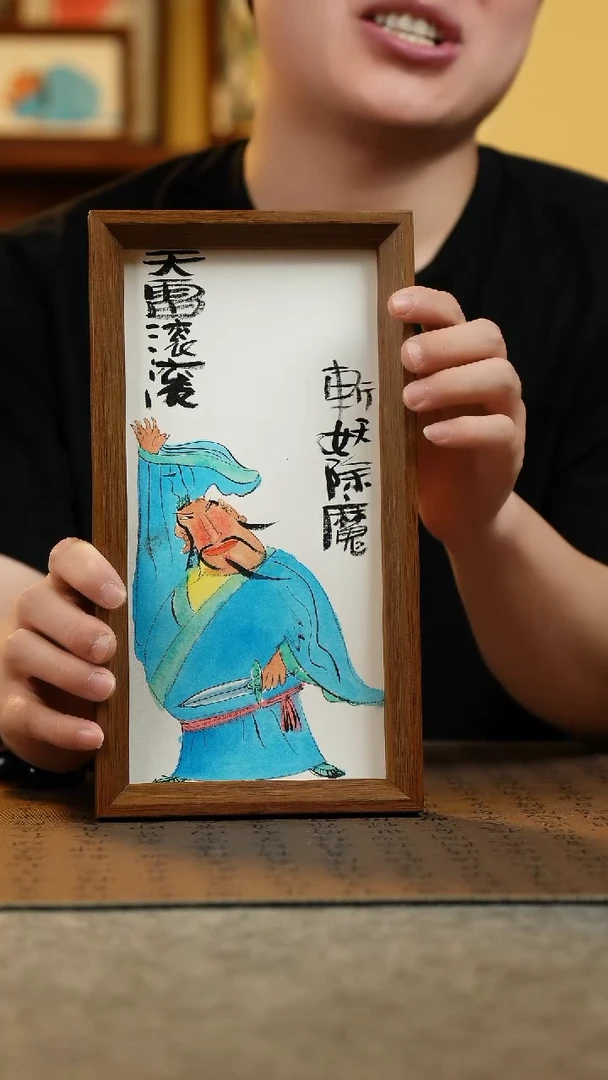 天雷滚滚
斬妖除魔